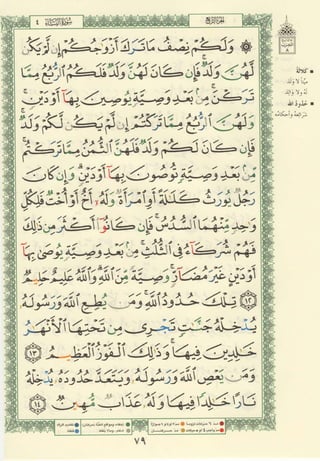 سُورَةُ النِّسَاءِ ٤
الجُزْءُ الرَّابِعُ
وَلَكُمْ نِصْفُ مَا تَرَكَ أَزْوَاجُكُمْ إِن لَّمْ يَكُن
لَّهُنَّ وَلَدٌ فَإِن كَانَ لَهُنَّ وَلَدٌ فَلَكُمُ الرُّبُعُ مِمَّا
تَرَكْنَ مِنۢ بَعْدِ وَصِيَّةٍ يُوصِينَ بِهَآ أَوْ دَيْنٍ
وَلَهُنَّ الرُّبُعُ مِمَّا تَرَكْتُمْ إِن لَّمْ يَكُن لَّكُمْ وَلَدٌ
فَإِن كَانَ لَكُمْ وَلَدٌ فَلَهُنَّ الثُّمُنُ مِمَّا تَرَكْتُم
مِّنۢ بَعْدِ وَصِيَّةٍ تُوصُونَ بِهَآ أَوْ دَيْنٍ وَإِن كَانَ
رَجُلٌ يُورَثُ كَلَالَةً أَوِ امْرَأَةٌ وَلَهُۥٓ أَخٌ أَوْ أُخْتٌ فَلِكُلِّ
وَاحِدٍ مِّنْهُمَا السُّدُسُ فَإِن كَانُوٓا أَكْثَرَ مِن ذَٰلِكَ
فَهُمْ شُرَكَآءُ فِي الثُّلُثِ مِنۢ بَعْدِ وَصِيَّةٍ يُوصَىٰ بِهَآ
أَوْ دَيْنٍ غَيْرَ مُضَآرٍّ وَصِيَّةً مِّنَ اللَّهِ وَاللَّهُ عَلِيمٌ حَلِيمٌ
١٢ تِلْكَ حُدُودُ اللَّهِ وَمَن يُطِعِ اللَّهَ وَرَسُولَهُۥ
يُدْخِلْهُ جَنَّاتٍ تَجْرِي مِن تَحْتِهَا الْأَنْهَارُ
خَالِدِينَ فِيهَا وَذَٰلِكَ الْفَوْزُ الْعَظِيمُ ١٣
وَمَن يَعْصِ اللَّهَ وَرَسُولَهُۥ وَيَتَعَدَّ حُدُودَهُۥ يُدْخِلْهُ
نَارًا خَالِدًا فِيهَا وَلَهُۥ عَذَابٌ مُّهِينٌ ١٤
■ كَلَالَةً
■ حُدُودُ اللهِ
شرائعه وأحكامه
٧٩